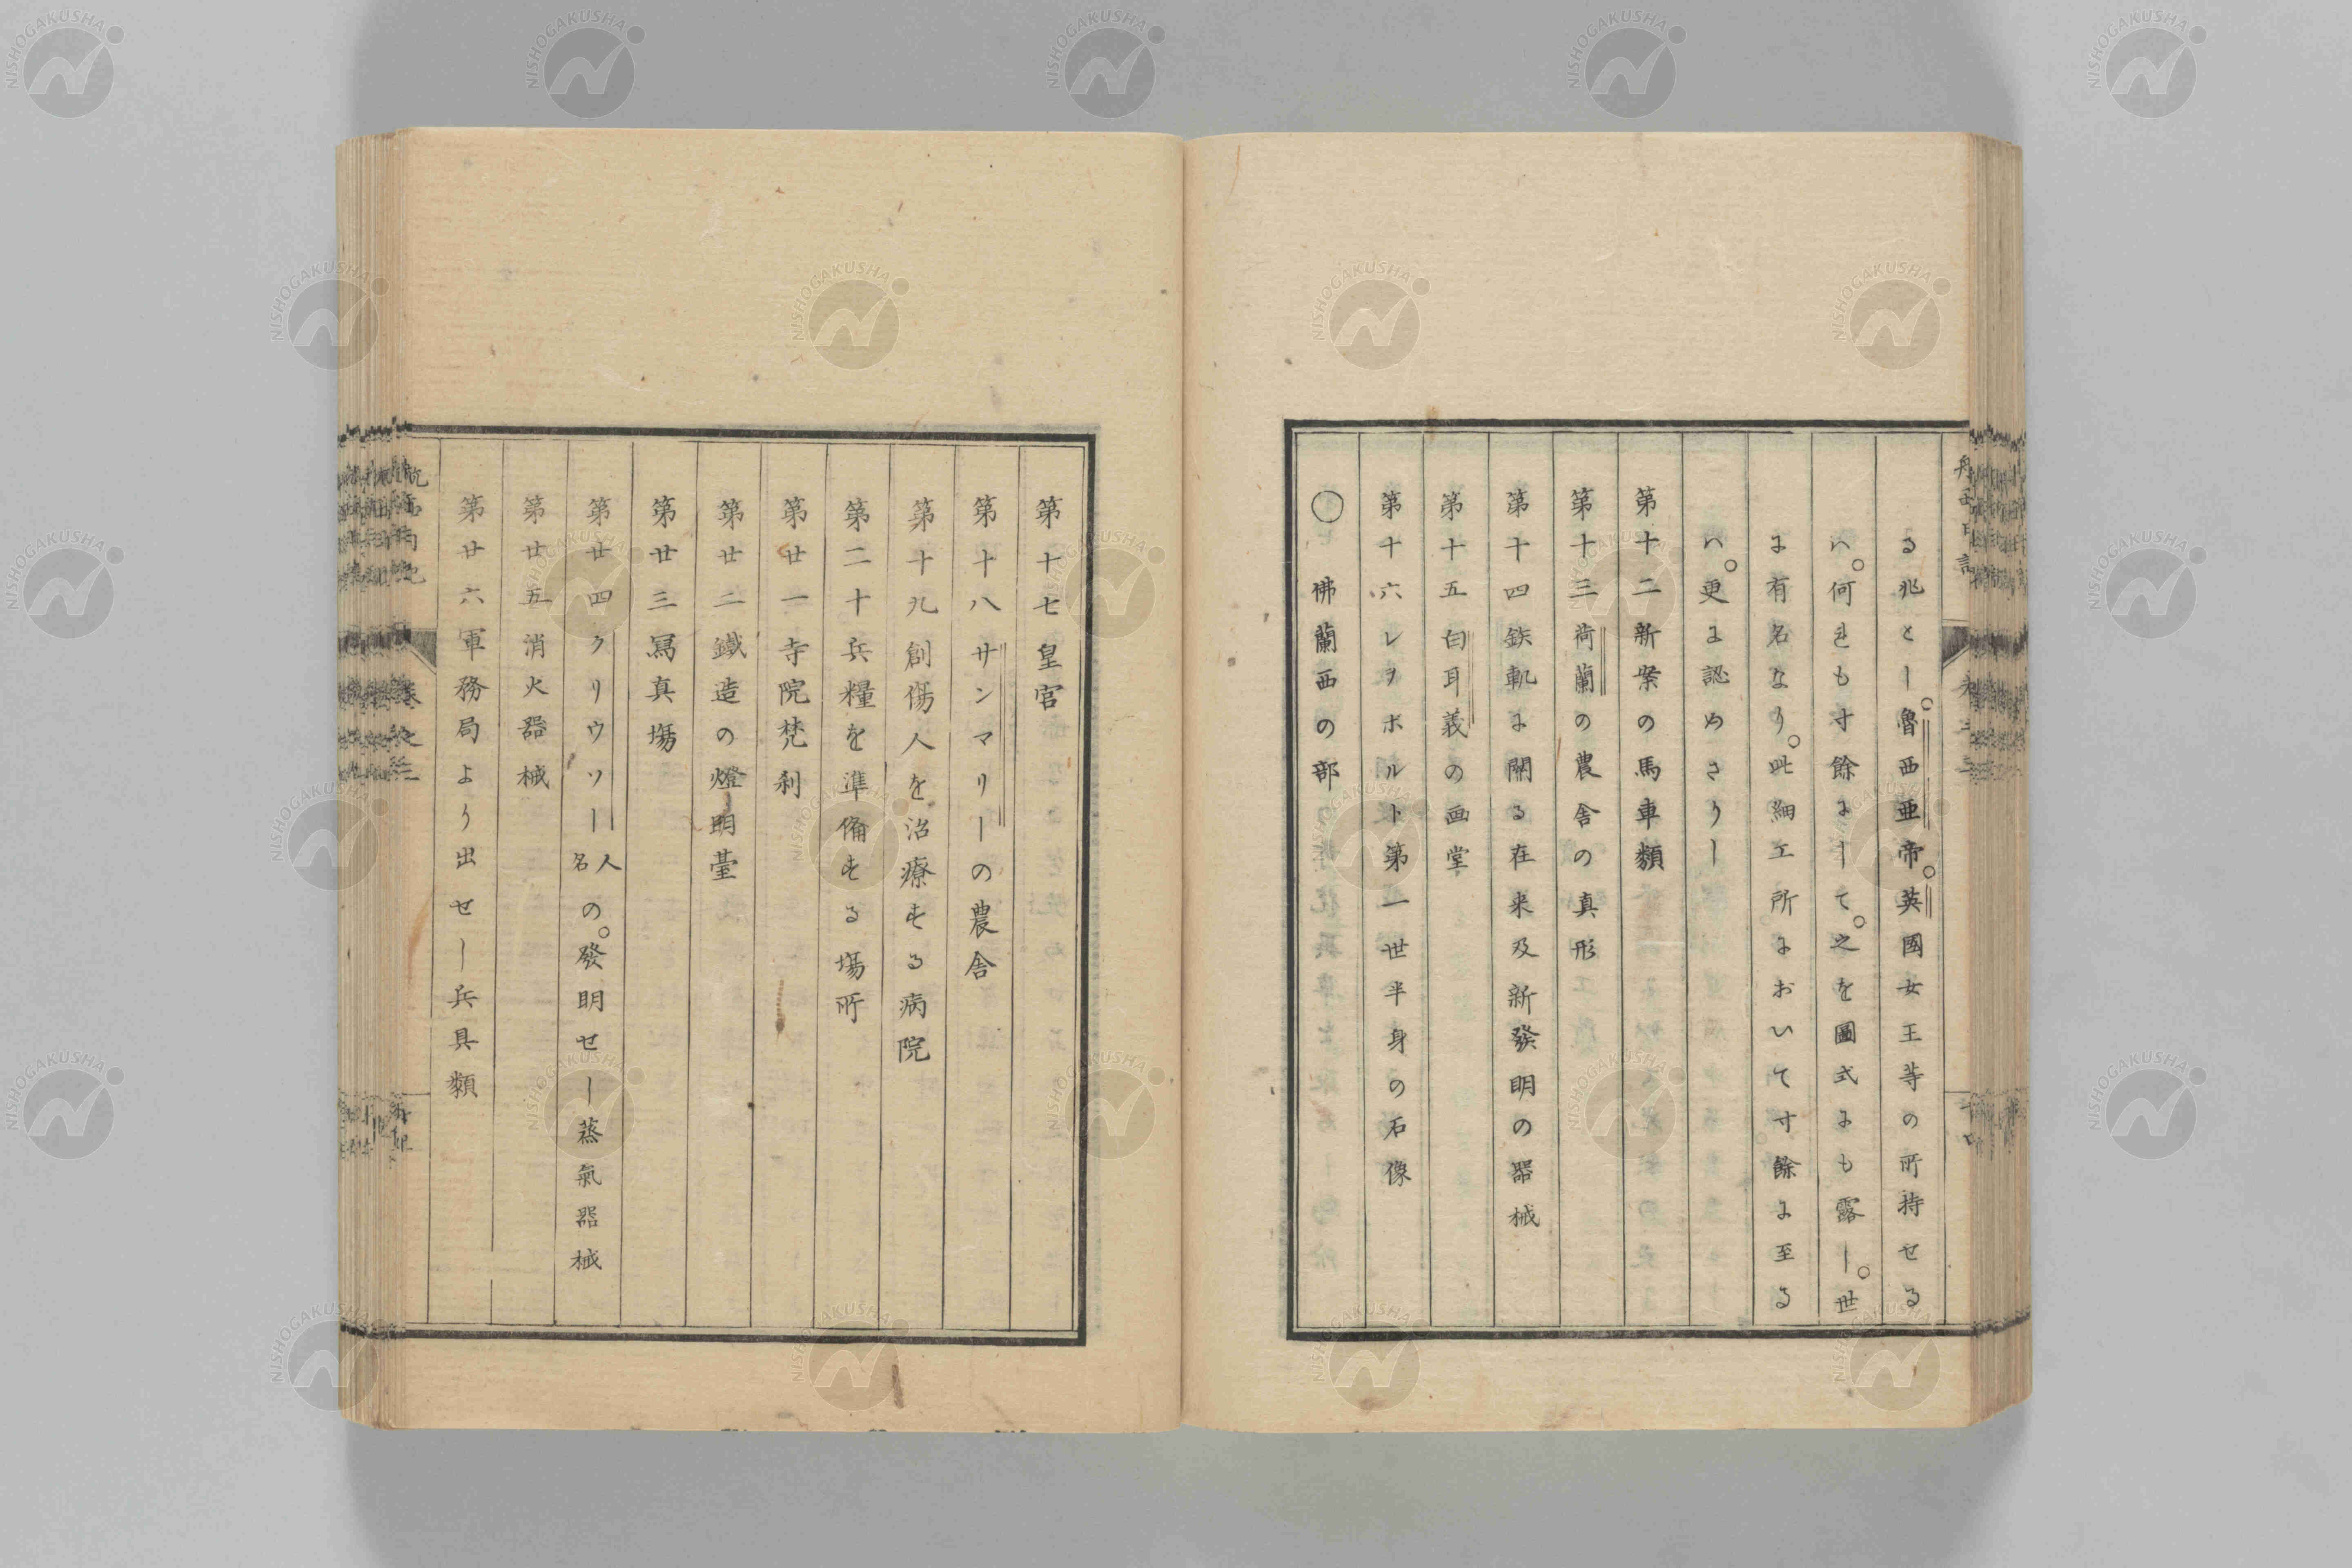 る兆とし。魯西亜帝。英國女王等の所持せる
ハ。何れも寸餘にして。之を圖式にも露し。世
に有名なり。此細工所において寸餘に至る
ハ。更に認めさりし
第十二新築の馬車類
第十三荷蘭の農舎の真形
第十四鉄軌に關る在来及新發明の器械
第十五白耳義の画堂
第十六レヲポルト第一世半身の石像
〇佛蘭西の部
第十七皇宮
第十八サンマリーの農舎
第十九創傷人を治療する病院
第二十兵糧を準備する塲所
第廿一寺院梵刹
第廿二鐵造の燈明臺
第廿三冩真塲
第廿四クリウソー人名の。發明せし蒸氣器械
第廿五消火器械
第廿六軍務局より出せし兵具類
NISHOGAKUSHA